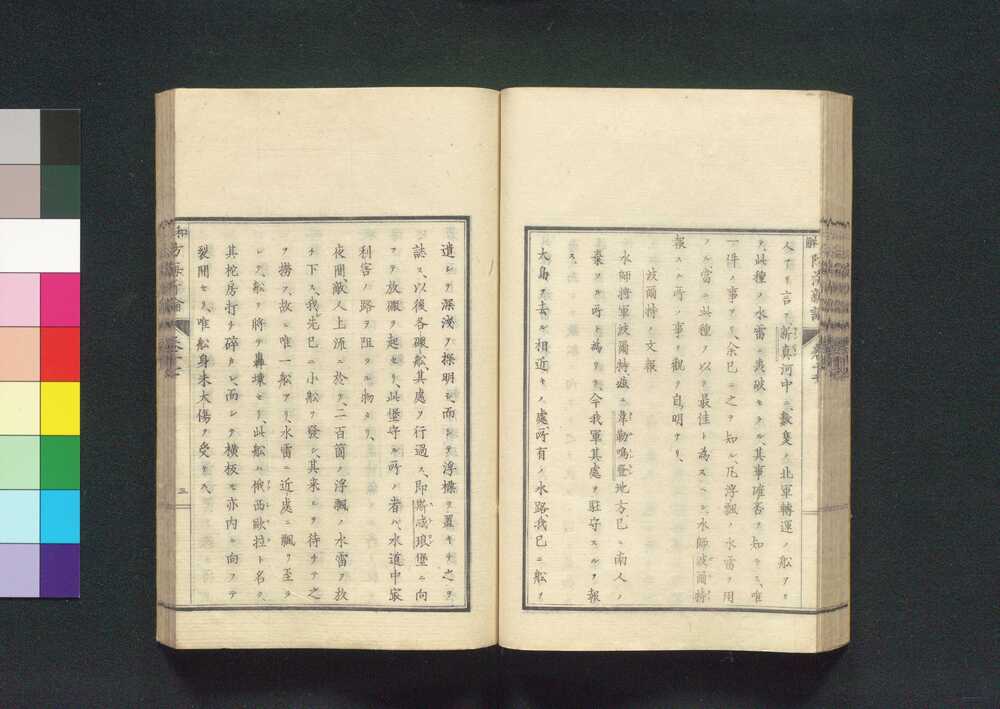 人アリ言フ新真河中ニ數隻ノ北軍轉運ノ船アリ
此種ノ水雷ニ轟破セラル、其事確否ヲ知ラズ、唯
一件ノ事アリ、余已ニ之ヲ知ル、凡浮飄ノ水雷ヲ用
フル當ニ此種ヲ以テ最佳ト為スベシ、水師波爾特
報スル所ノ事ヲ觀テ自明ナリ、
波爾特ノ文報
水師將軍波爾特處ニ韋勒鳴登地方已ニ南人ノ
棄ツル所ト為リテ、今我軍其處ヲ駐守スルヲ報
ス、
大島ヲ去ル相近キノ處、所有ノ水路我已ニ船ヲ
遣シテ深淺ヲ探明シ、而シテ浮標ヲ置キテ之ヲ
誌ス、以後各礮船其處ヲ行過ス、即斯咸琅堡ニ向
フテ放礮ヲ起セリ、此堡守ル所ノ者ハ、水道中寂
利害ノ路ヲ阻ツル物ナリ、
夜間敵人上流ニ於テ、二百箇ノ浮飄ノ水雷ヲ放
チ下ス、我先已ニ小船ヲ發シ、其来ルヲ待チテ之
ヲ撈フ、故ニ唯一船アリ、水雷ニ近處ニ飄ヲ至ラ
レテ、船ヲ將テ轟壊セリ、此船ハ俄西歐拉ト名ク、
其柁房打チ碎カレ、而シテ横板モ亦内ニ向フテ
裂開セリ、唯船身未大傷ヲ受ケス、
三